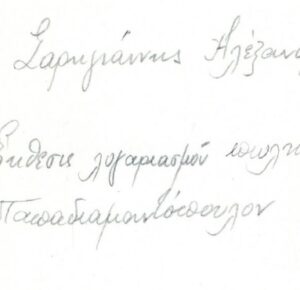 Σαρηγιάννης Αλέξαν
Έκθεσις λογαριασμού πωλη
Παπαδιαμαντόπουλον